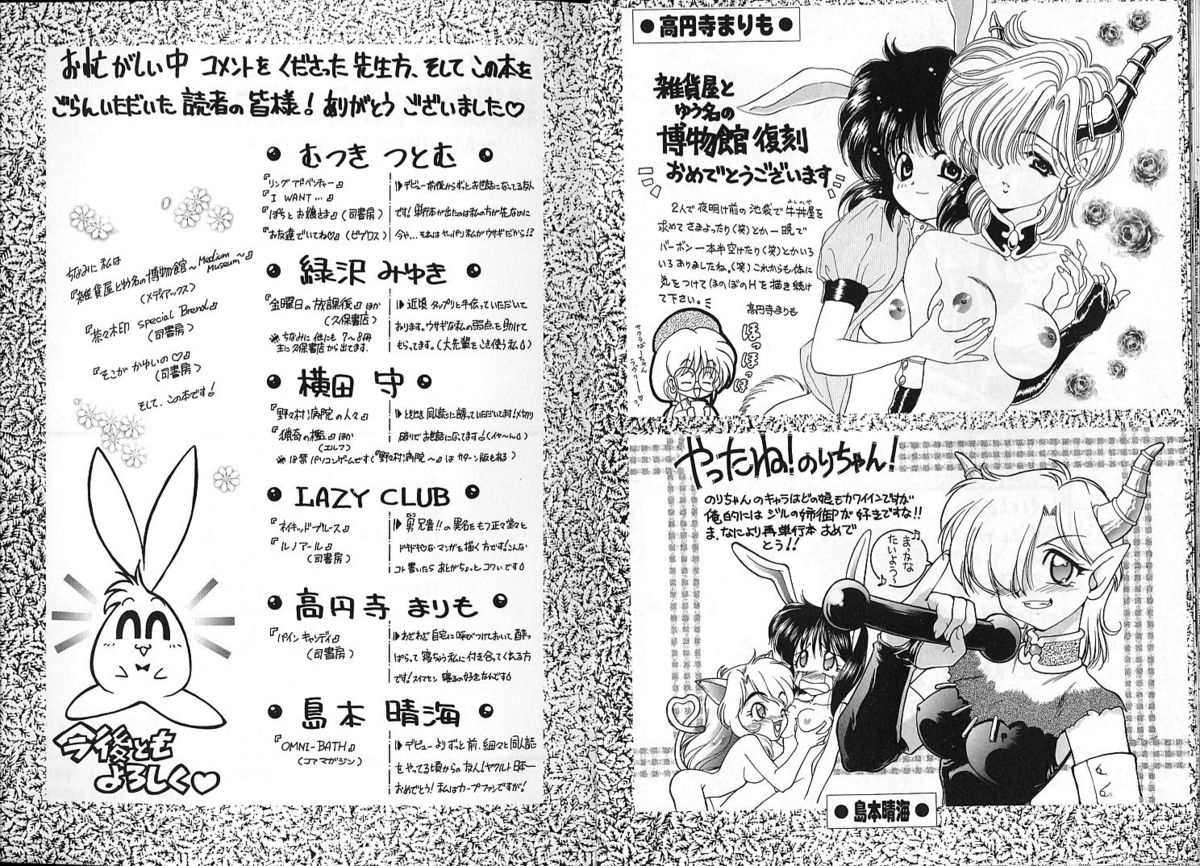 お忙がしい中 コメントを くださった 先生方、そして この本を
ごらんいただいた 読者の皆様! ありがとう ございました♡
ちなみに 私は
『雑貨屋と幼名の博物館～Medium Museum～』
(メディアックス)
『茶々木印 Special Brend』
(司書房)
『そこが かゆいの♡』
(司書房)
そして、この本です!
今後とも
よろしく♡
● むつき つとむ ●
『リング アドベンチャー』
『I WANT…』
『ぽちとお嬢さま』(司書房)
『お友達でいてね♡』(ビブロス)
▷デビュー前後からずっとお世話になってる友人
です!単行本が出たのは私の方が先なのに
今や…それはヤッパリ私がウサギだから!?
● 緑沢 みゆき ●
『金曜日の放課後』ほか
(久保書店)
※ちなみに 他にも 7～8冊
主に久保書店から出てます。
▷近頃 タップリと手伝っていただいて
おります。ウサギな私の弱点を助けて
もらってます。(大先輩をこき使う私)
● 横田 守 ●
『野々村病院の人々』
『猟奇の檻』ほか
(エルフ)
※18禁パソコンゲームです(『野々村病院～』はサターン版もある)
▷ときどき同人誌に誘っていただいてます!メ切り
破りでお世話になってます♪(イヤ～ん)
● LAZY CLUB ●
『ネイキッドブルース』
『ルノアール』
(司書房)
▷男兄貴!!の異名をもつ正々堂々と
ドキドキなマンガを描く方です!こんな
コト書いたら あとがちょっと コワいです
● 高円寺 まりも ●
『パイン キャンディ』
(司書房)
▷わざわざ自宅に呼びつけておいて、酔っ
ぱらって寝ちゃう私に付き合ってくれる方
です!スイマセン 寝るの好きなんです
● 島本 晴海 ●
『OMNI-BATH』
(コアマガジン)
▷デビューよりずっと前、細々と同人誌
をやってる頃からの友人!ヤクルト日本一
おめでとう!私はカープファンですが!
● 高円寺まりも ●
雑貨屋と
ゆう名の
博物館 復刻
おめでとうございます
2人で夜明け前の池袋で牛丼屋を
求めてさまよったり(笑)とか一晩で
バーボン一本半空けたり(笑)とかいろ
いろありましたね、(笑)これからも体に
気をつけてほのぼのHを描き続け
て下さい。
高円寺まりも
ほっほっほっ
やったね!のりちゃん!
のりちゃんのキャラはどの娘もカワイインですが
俺的にはジルの姉御が好きですな!!
ま、なにより再単行本おめで
とう!!
まっかな
たいよう～♪
● 島本晴海 ●